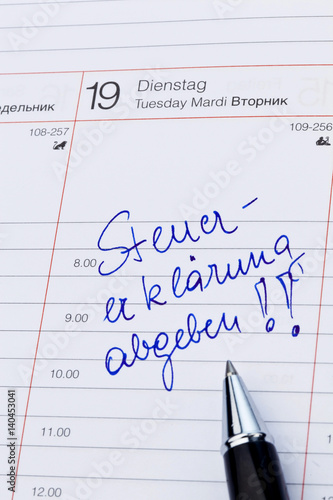 19 Dienstag
Tuesday Mardi Вторник
едельник
108-257
109-256
Steuer-
8.00
erklärung
9.00
abgeben!!!
10.00
11.00
12.00
Adobe Stock | #140453041